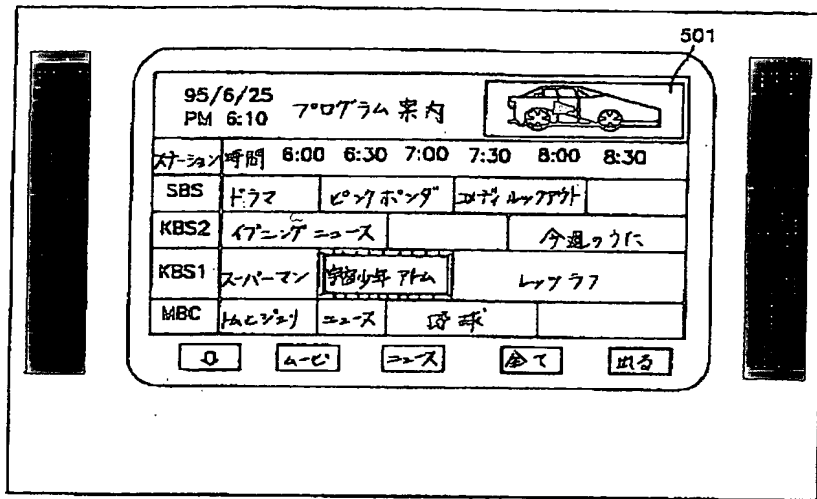 501
95/6/25
PM 6:10
プログラム案内
ステーション 時間 6:00 6:30 7:00 7:30 8:00 8:30
SBS ドラマ ピンクポンダ コメディルックアウト
KBS2 イブニングニュース 今週のうた
KBS1 スーパーマン 宇宙少年アトム レッツラフ
MBC トムとジェリ ニュース 野球
ムービ ニュース 全て 出る